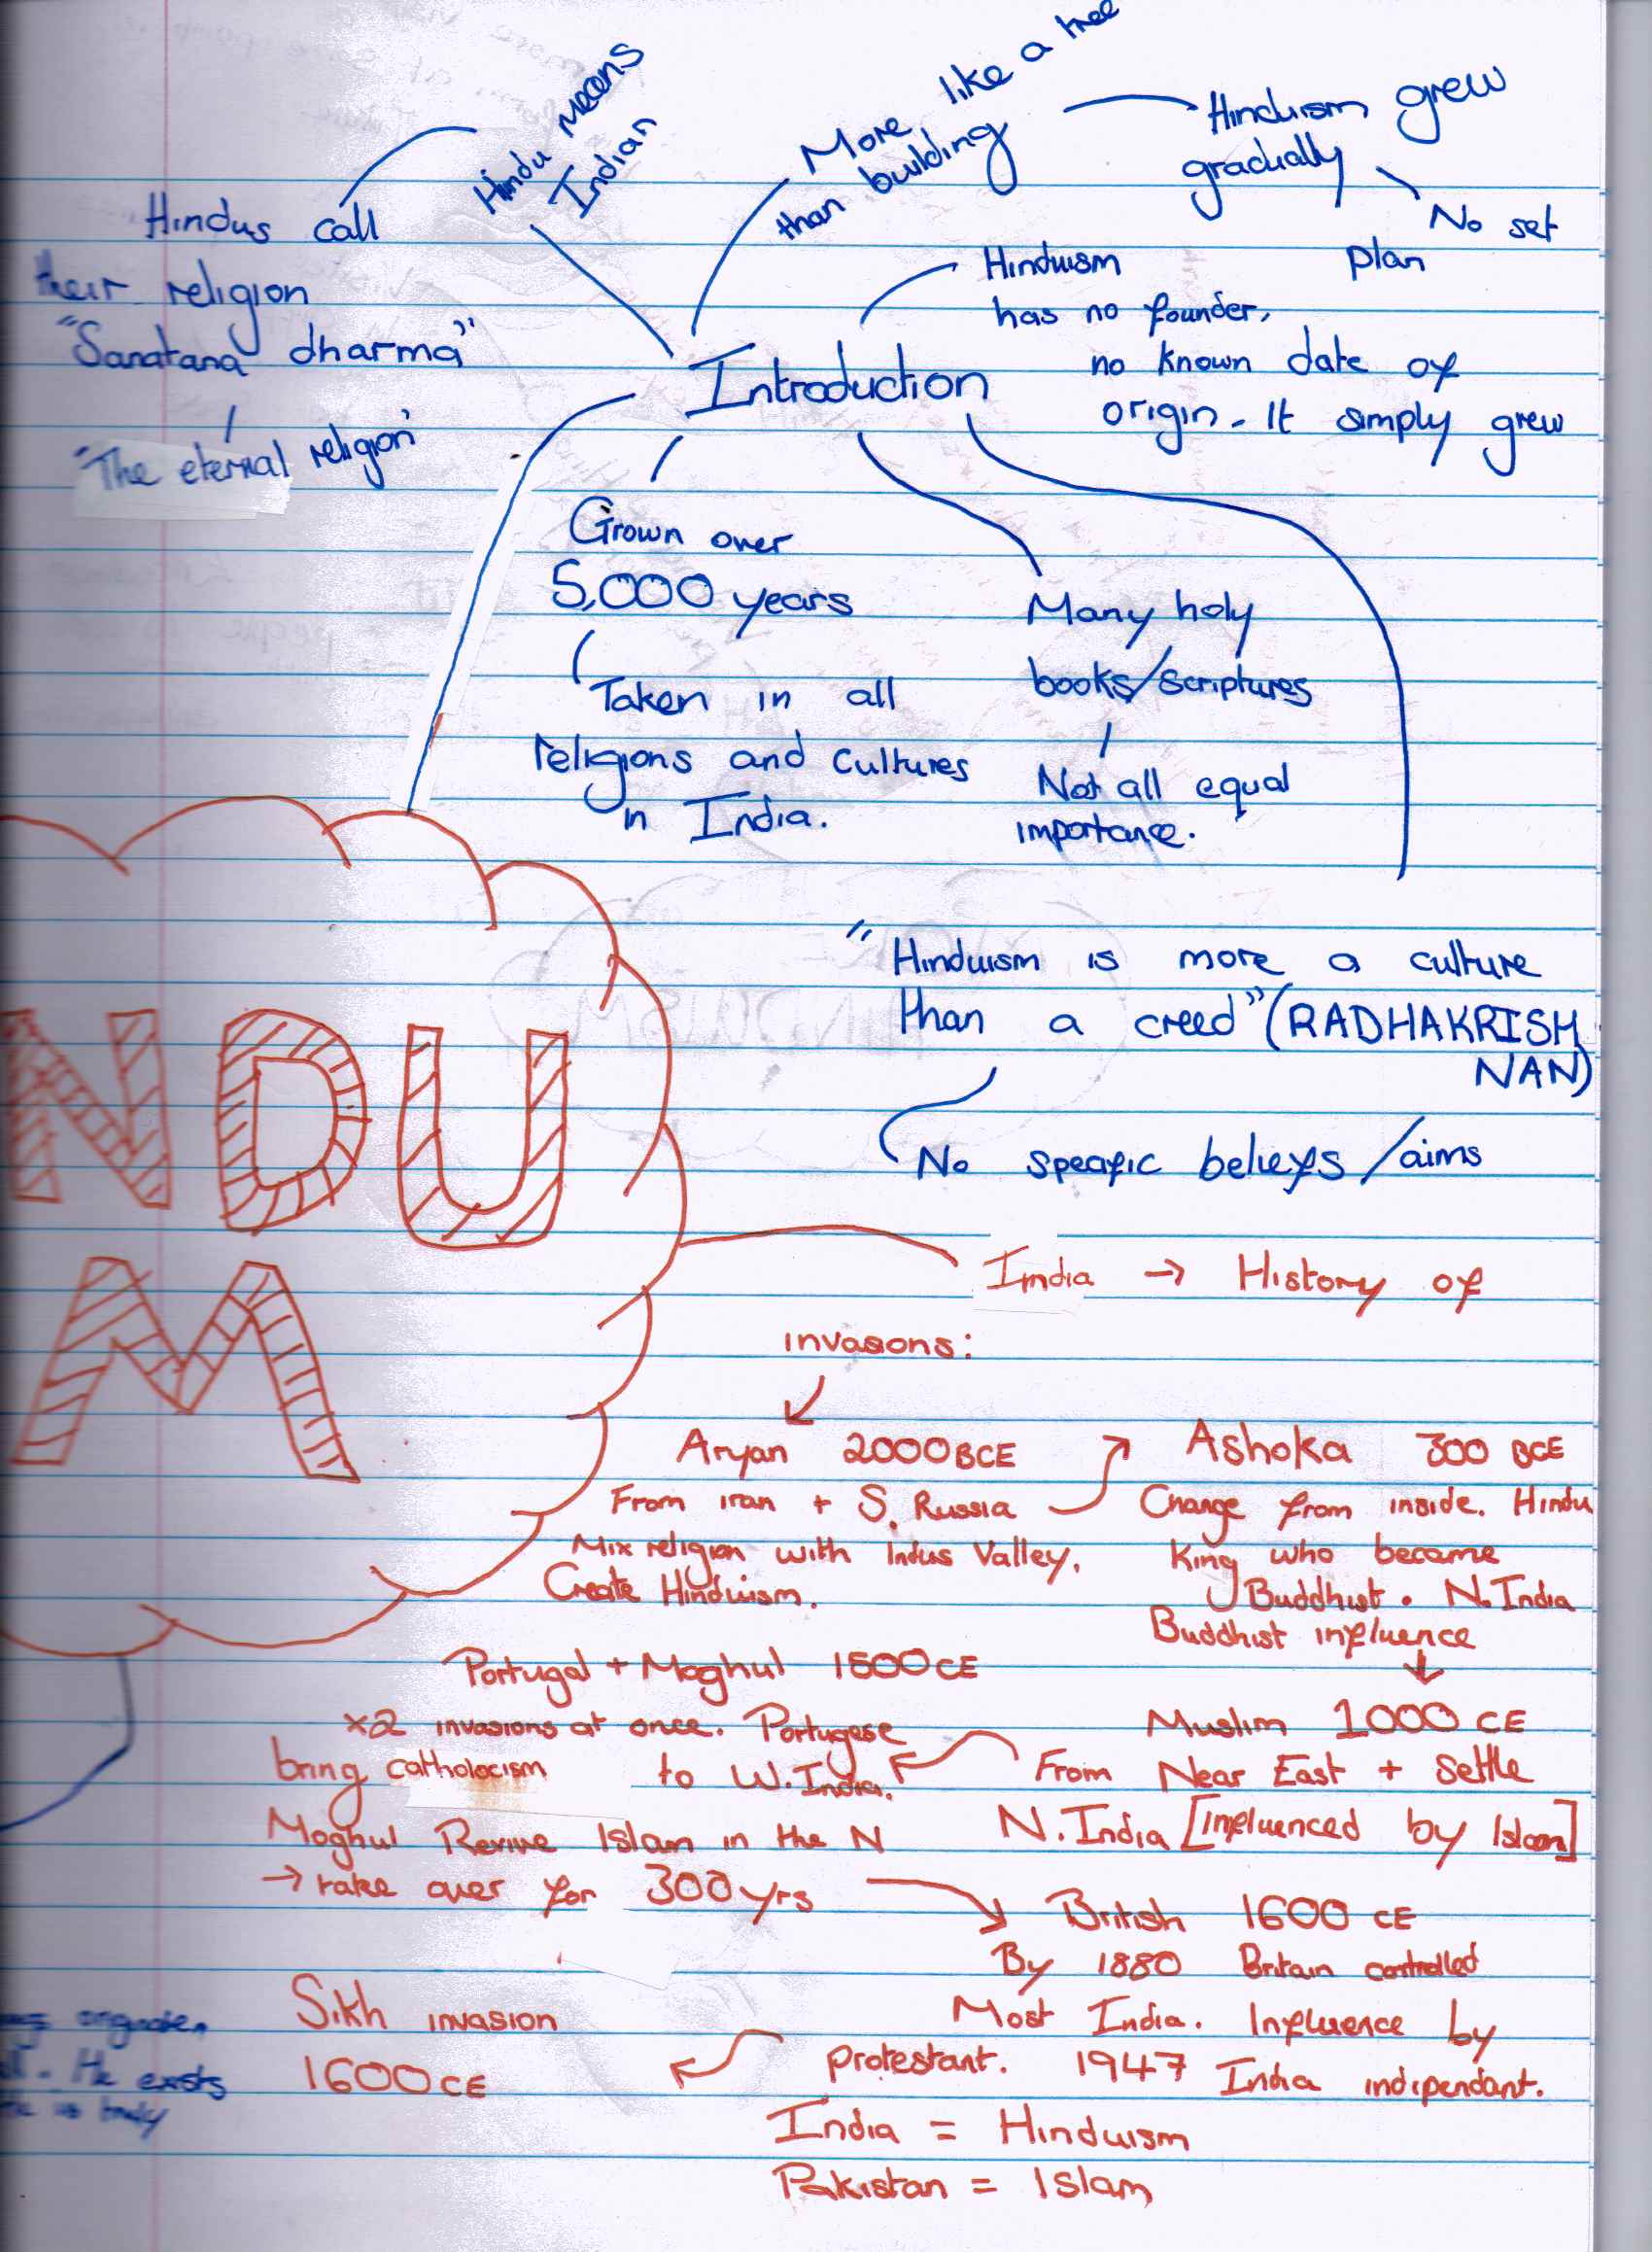 Hindu means
Indian
Hindus call
their religion
"Sanatana dharma"
"The eternal religion"
More like a tree
than building
Hinduism grew
gradually
No set
plan
Hinduism
has no founder,
no known date of
origin - It simply grew
Introduction
Grown over
5,000 years
Taken in all
religions and cultures
in India.
Many holy
books/scriptures
Not all equal
importance.
"Hinduism is more a culture
than a creed" (RADHAKRISH
NAN)
No specific beliefs/aims
NDU
M
India → History of
invasions:
Aryan 2000BCE
From iran + S. Russia
Mix religion with Indus Valley.
Create Hinduism.
Ashoka 300 BCE
Change from inside. Hindu
King who became
Buddhist. N. India
Buddhist influence
Muslim 1000 CE
From Near East + Settle
N. India [influenced by Islam]
Portugal + Moghul 1500CE
x2 invasions at once. Portugese
bring catholocism to W. India.
Moghul Revive Islam in the N
→ take over for 300yrs
British 1600 CE
By 1880 Britain controlled
Most India. Influence by
protestant. 1947 India indipendant.
India = Hinduism
Pakistan = Islam
Sikh invasion
1600CE
He exists
truly